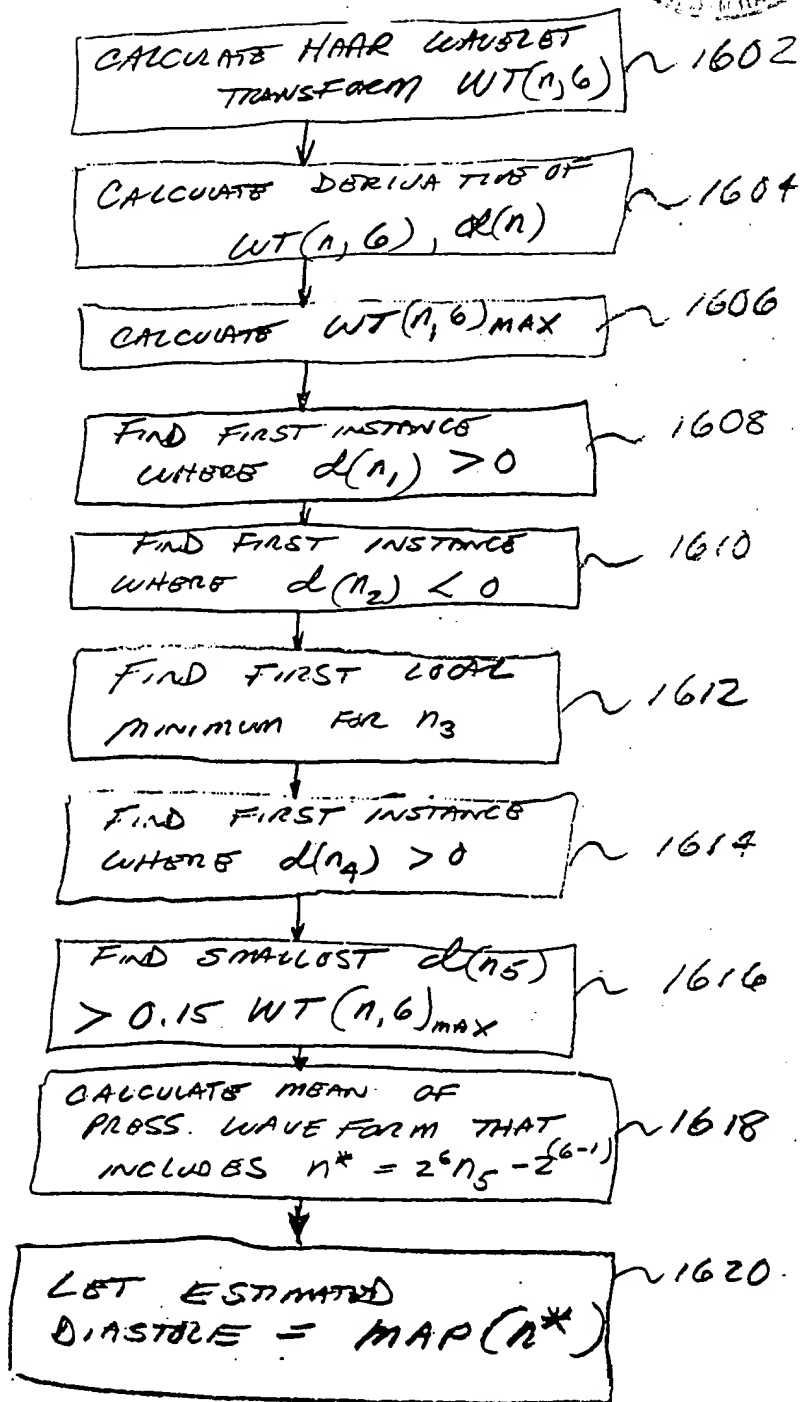 CALCULATE HAAR WAVELET 1602
TRANSFORM WT(n,6)
CALCULATE DERIVATIVE OF 1604
WT(n,6), d(n)
CALCULATE WT(n,6)MAX 1606
FIND FIRST INSTANCE 1608
WHERE d(n₁) > 0
FIND FIRST INSTANCE 1610
WHERE d(n₂) < 0
FIND FIRST LOCAL
MINIMUM FOR n₃ 1612
FIND FIRST INSTANCE
WHERE d(n₄) > 0 1614
FIND SMALLOST d(n₅) 1616
> 0.15 WT(n,6)MAX
CALCULATE MEAN OF
PRESS. WAVE FORM THAT 1618
INCLUDES n* = 2⁶n₅ - 2⁽⁶⁻¹⁾
LET ESTIMATED 1620
DIASTOLE = MAP(n*)